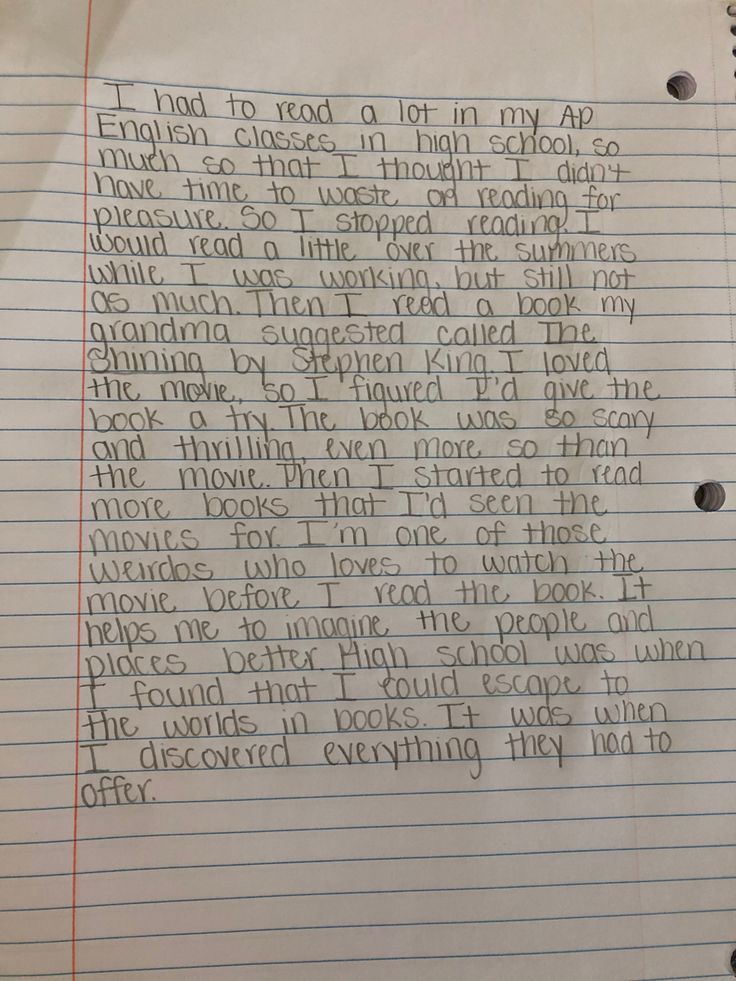 I had to read a lot in my AP
English classes in high school, so
much so that I thought I didn't
have time to waste on reading for
pleasure. So I stopped reading. I
would read a little over the summers
while I was working, but still not
as much. Then I read a book my
grandma suggested called The
Shining by Stephen King. I loved
the movie, so I figured I'd give the
book a try. The book was so scary
and thrilling, even more so than
the movie. Then I started to read
more books that I'd seen the
movies for. I'm one of those
weirdos who loves to watch the
movie before I read the book. It
helps me to imagine the people and
places better. High school was when
I found that I could escape to
the worlds in books. It was when
I discovered everything they had to
offer.